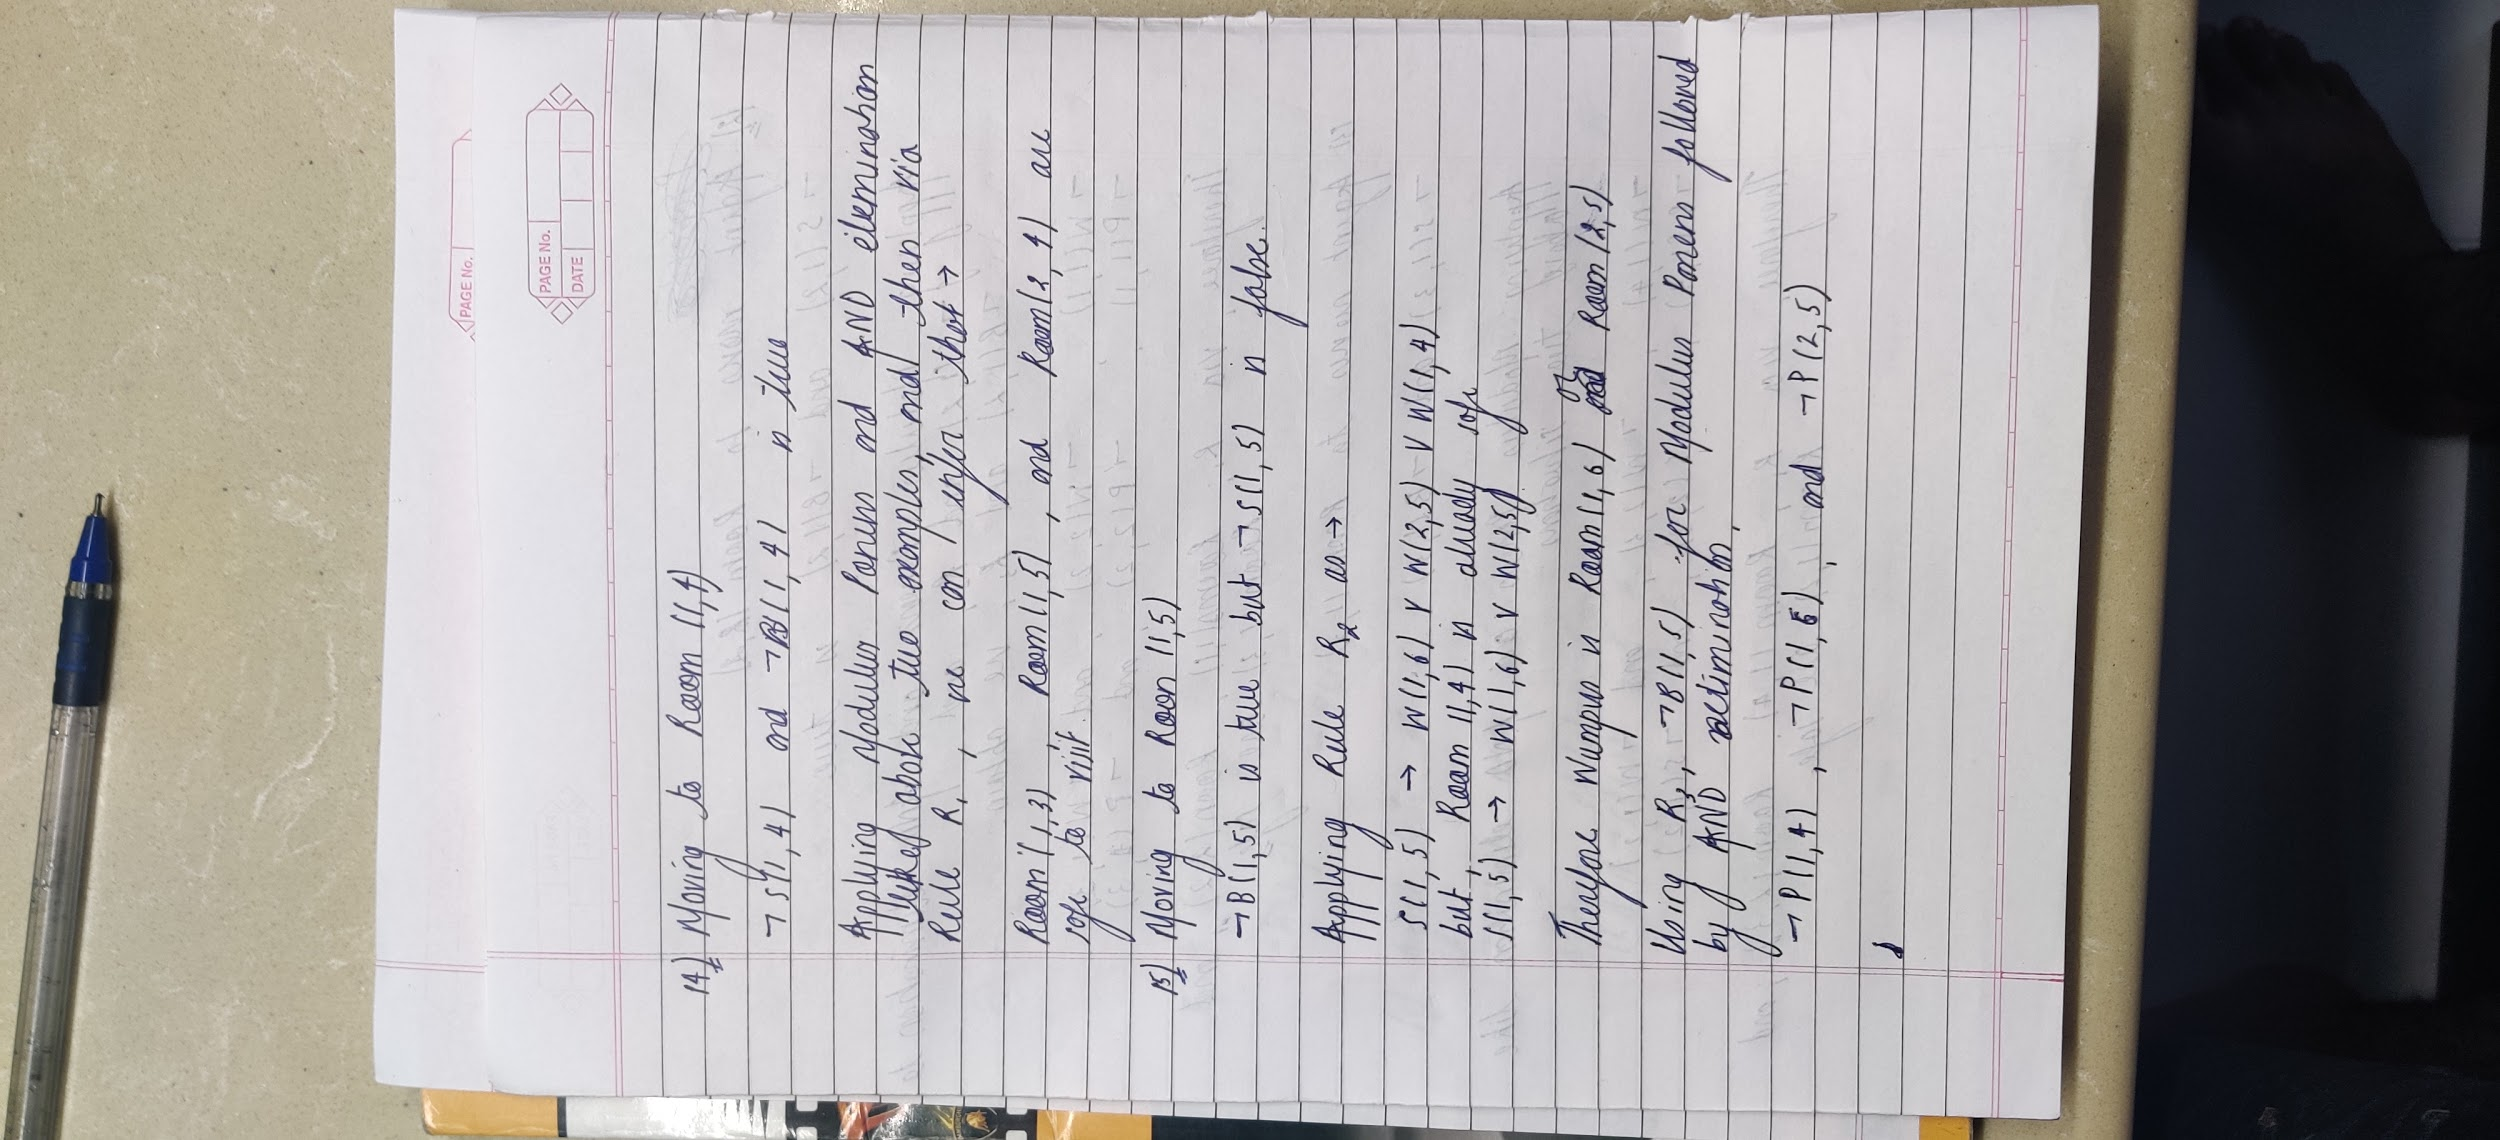 PAGE No.
PAGE No.
DATE
14) Moving to Room (1,4)
¬S(1,4) and ¬B(1,4) is true
Applying Modulus Ponens and AND elemination
like above two examples, and then via
Rule R1, we can infer that →
Room (1,3), Room(1,5), and Room(2,4) are
safe to visit
15) Moving to Room (1,5)
¬B(1,5) is true but ¬S(1,5) is false.
Applying Rule R2 as →
S(1,5) → W(1,6) V W(2,5) V W(1,4)
but, Room (1,4) is already safe
S(1,5) → W(1,6) V W(2,5)
Therefore Wumpus is Room(1,6) or Room(2,5)
Using R3, ¬B(1,5) for Modulus Ponens followed
by AND elimination,
¬P(1,4), ¬P(1,6), and ¬P(2,5)